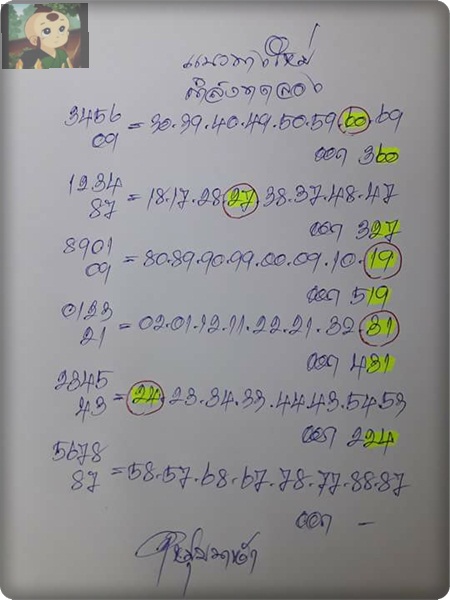 แนวทางใหม่
กำลังทดลอง
3456
09 = 30.39.40.49.50.59.60.69
ออก 360
1234
87 = 18.17.28.27.38.37.48.47
ออก 327
8901
09 = 80.89.90.99.00.09.10.19
ออก 519
0123
21 = 02.01.12.11.22.21.32.31
ออก 431
2345
43 = 24.23.34.33.44.43.54.53
ออก 224
5678
87 = 58.57.68.67.78.77.88.87
ออก –